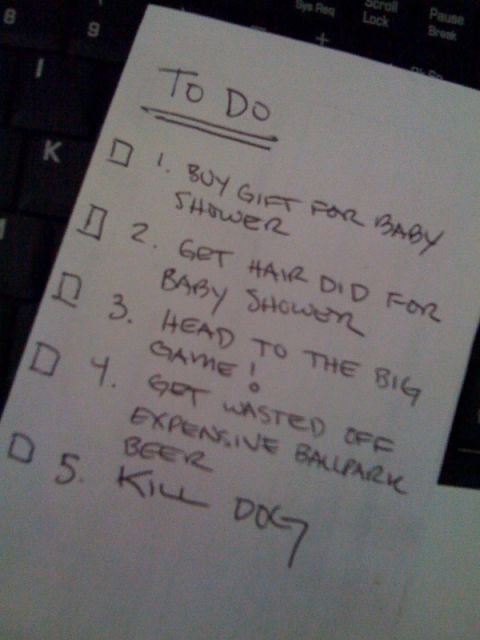 8
9
I
K
Sys Req
Scroll
Lock
Pause
Break
TO DO
1. BUY GIFT FOR BABY
SHOWER
2. GET HAIR DID FOR
BABY SHOWER
3. HEAD TO THE BIG
GAME!
4. GET WASTED OFF
EXPENSIVE BALLPARK
BEER
5. KILL DOG